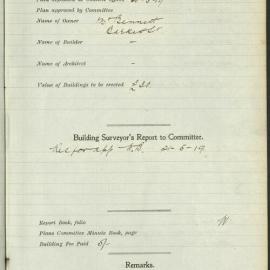 Plan approved by Committee
Name of Owner Bennett
Name of Builder -
Name of Architect -
Value of Buildings to be erected £30.
Building Surveyor's Report to Committee.
21-5-19
Report Book, folio
Plans Committee Minute Book, page
Building Fee Paid 5/-
Remarks.